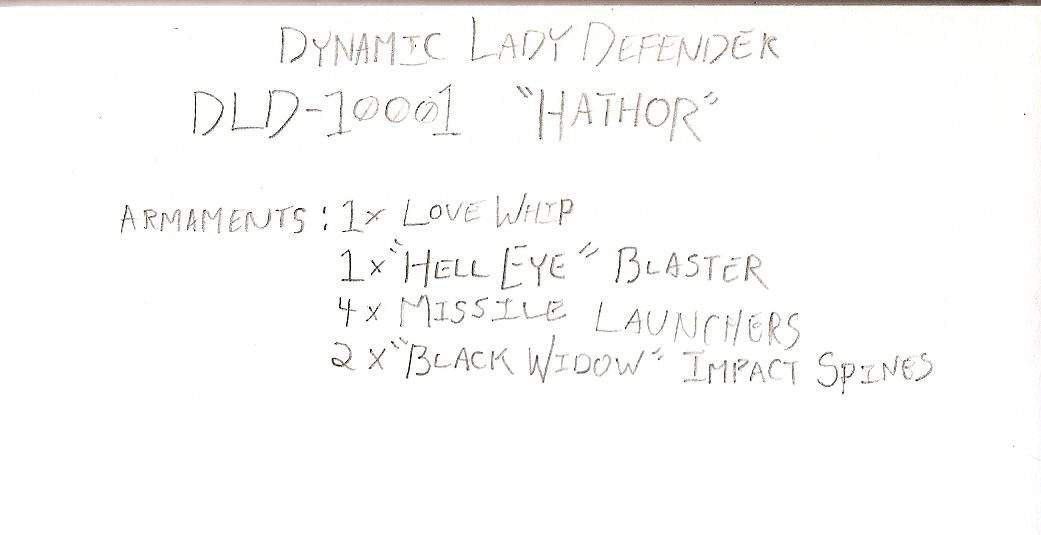 DYNAMIC LADY DEFENDER
DLD-10001 "HATHOR"
ARMAMENTS: 1x LOVE WHIP
1x "HELL EYE" BLASTER
4x MISSILE LAUNCHERS
2x "BLACK WIDOW" IMPACT SPINES